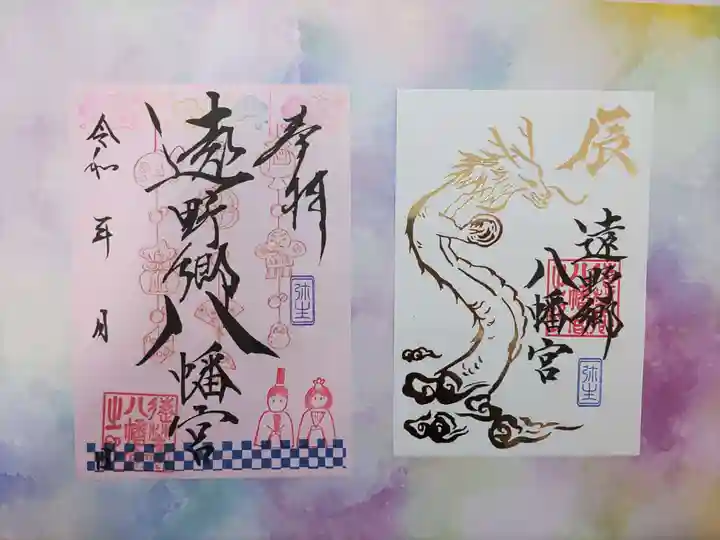 奉拝
遠野郷八幡宮
令和 年 月 日
弥生
辰
遠野郷
八幡宮
弥生